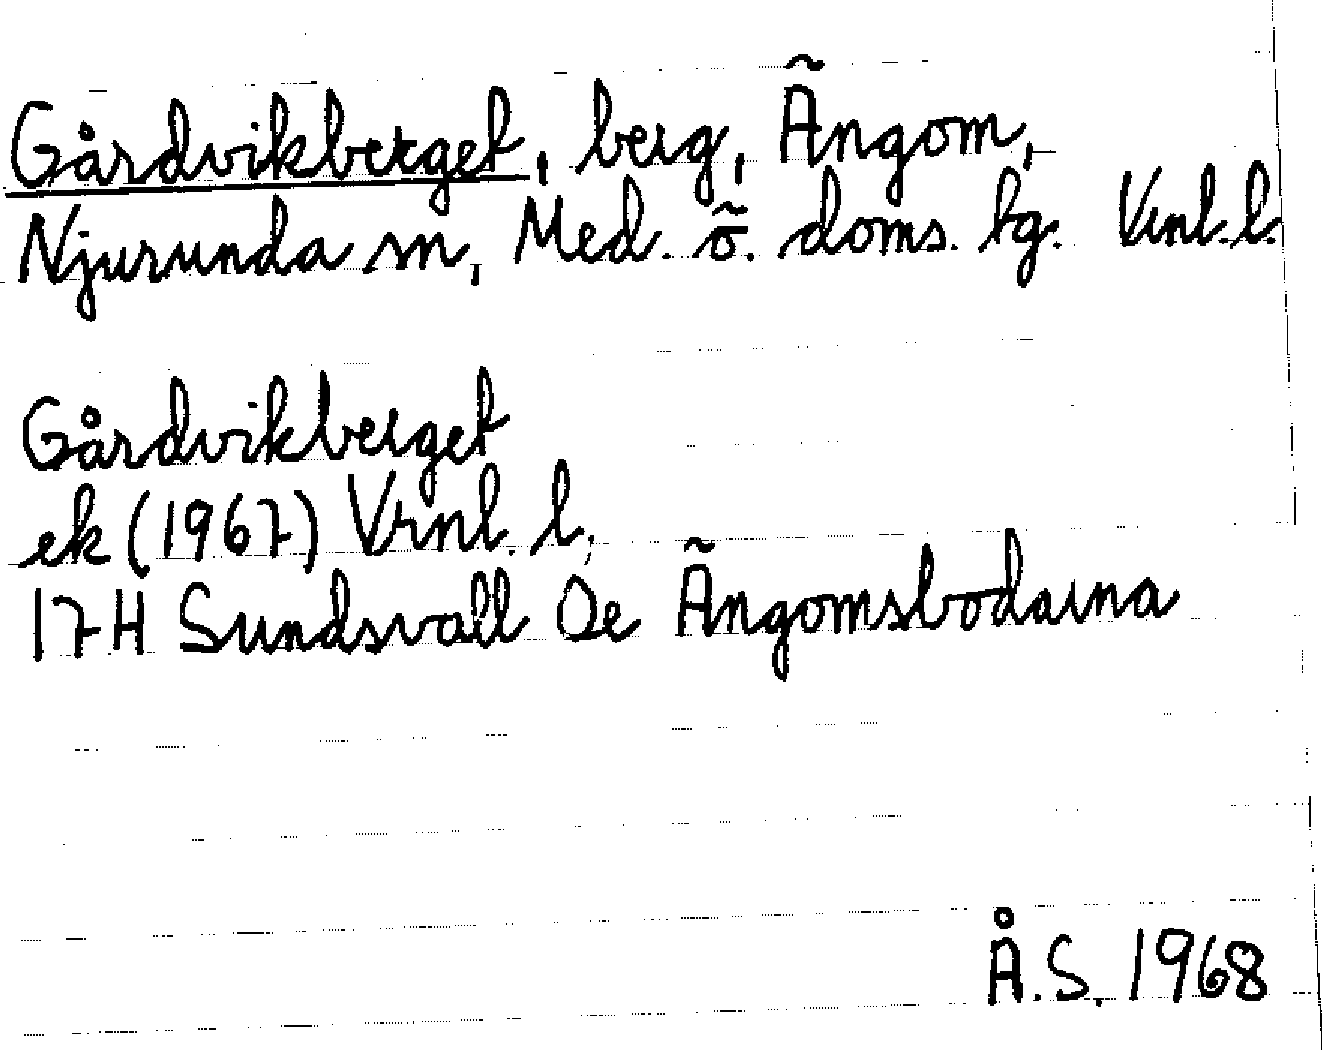 Gårdvikberget, berg, Ängom,
Njurunda sn, Med. ö. doms. tg. Vrnl. l.
Gårdvikberget
ek (1967) Vrnl. l.
17H Sundsvall Oe Ängomsbodarna
Å.S. 1968